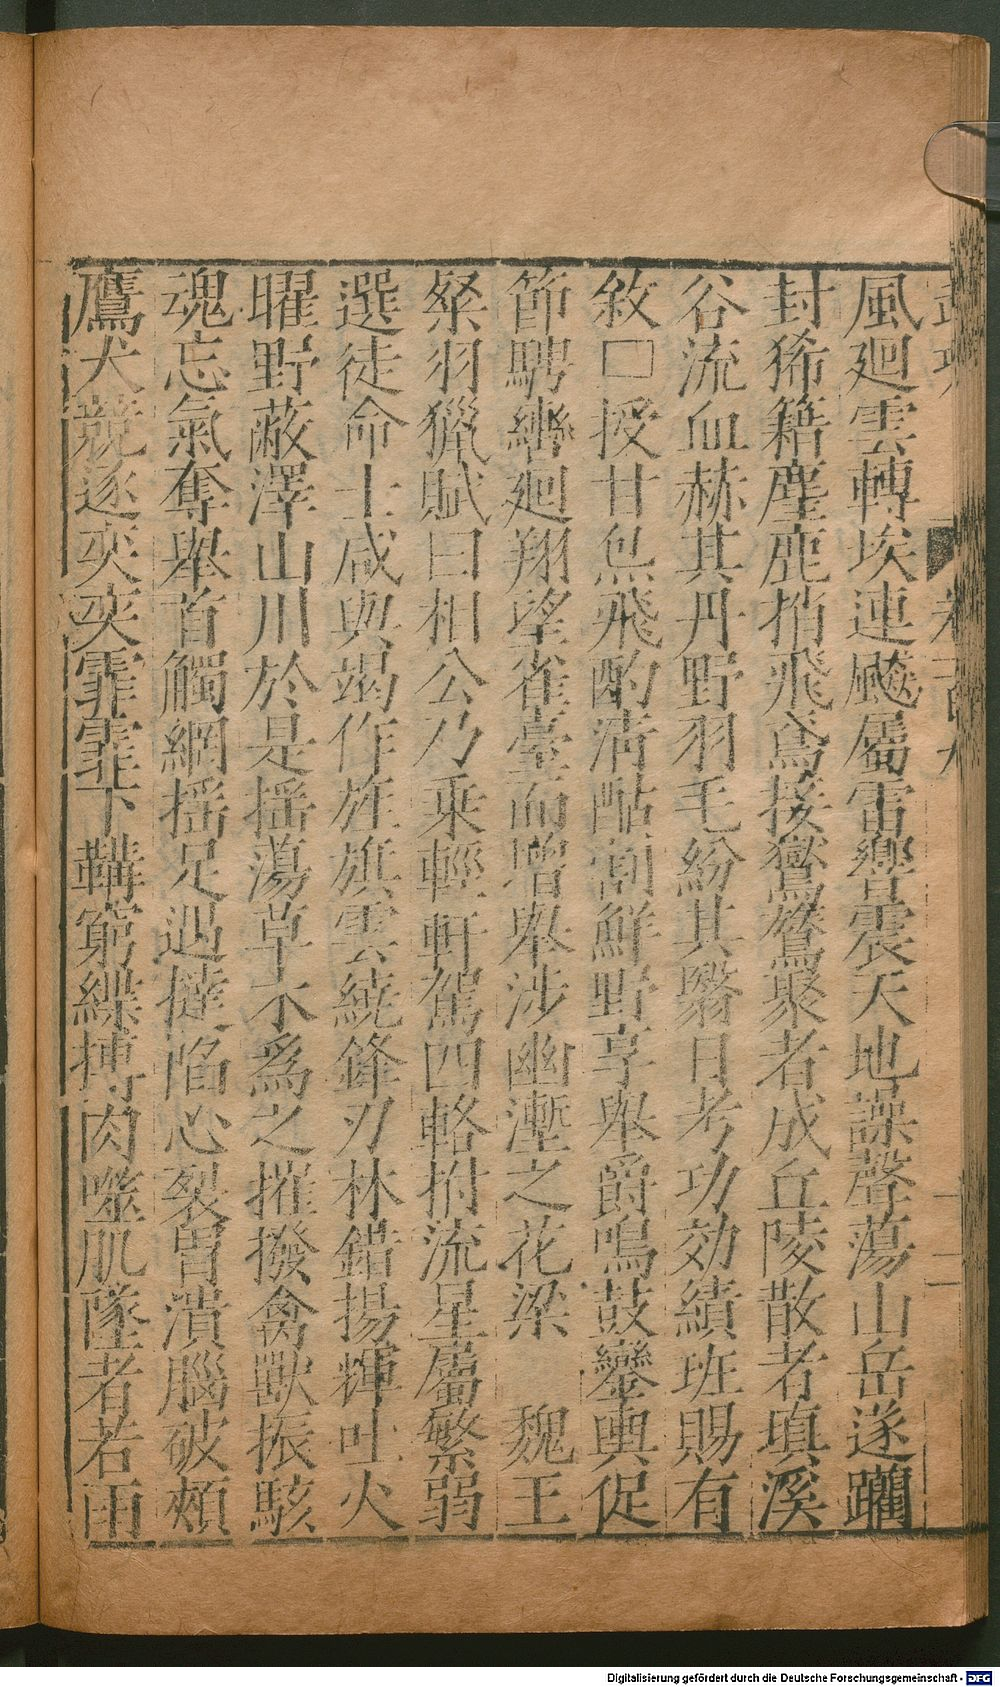 風廻雲轉埃連颷屬雷響震天地譟聲蕩山岳遂躪
封豨籍麈鹿捎飛鳶接鸑鷟聚者成丘陵散者塡溪
谷流血赫其丹野羽毛紛其翳日考功効績班賜有
敘□授甘炰飛酌清酤割鮮野享舉爵鳴鼓鑾輿促
節騁轡廻翔望雀臺而增舉涉幽壍之花梁 魏王
粲羽獵賦曰相公乃乘輕軒駕四輅拊流星屬繁弱
選徒命士咸與竭作旌旗雲繞鋒刃林錯揚輝吐火
曜野蔽澤山川於是揺蕩草木爲之摧撥禽獸振駭
魂忘氣奪舉首觸網揺足遇撻陷心裂胃潰腦破頰
鷹犬競逐奕奕霏霏下韝窮緤搏肉噬肌墜者若雨
Digitalisierung gefördert durch die Deutsche Forschungsgemeinschaft - DFG